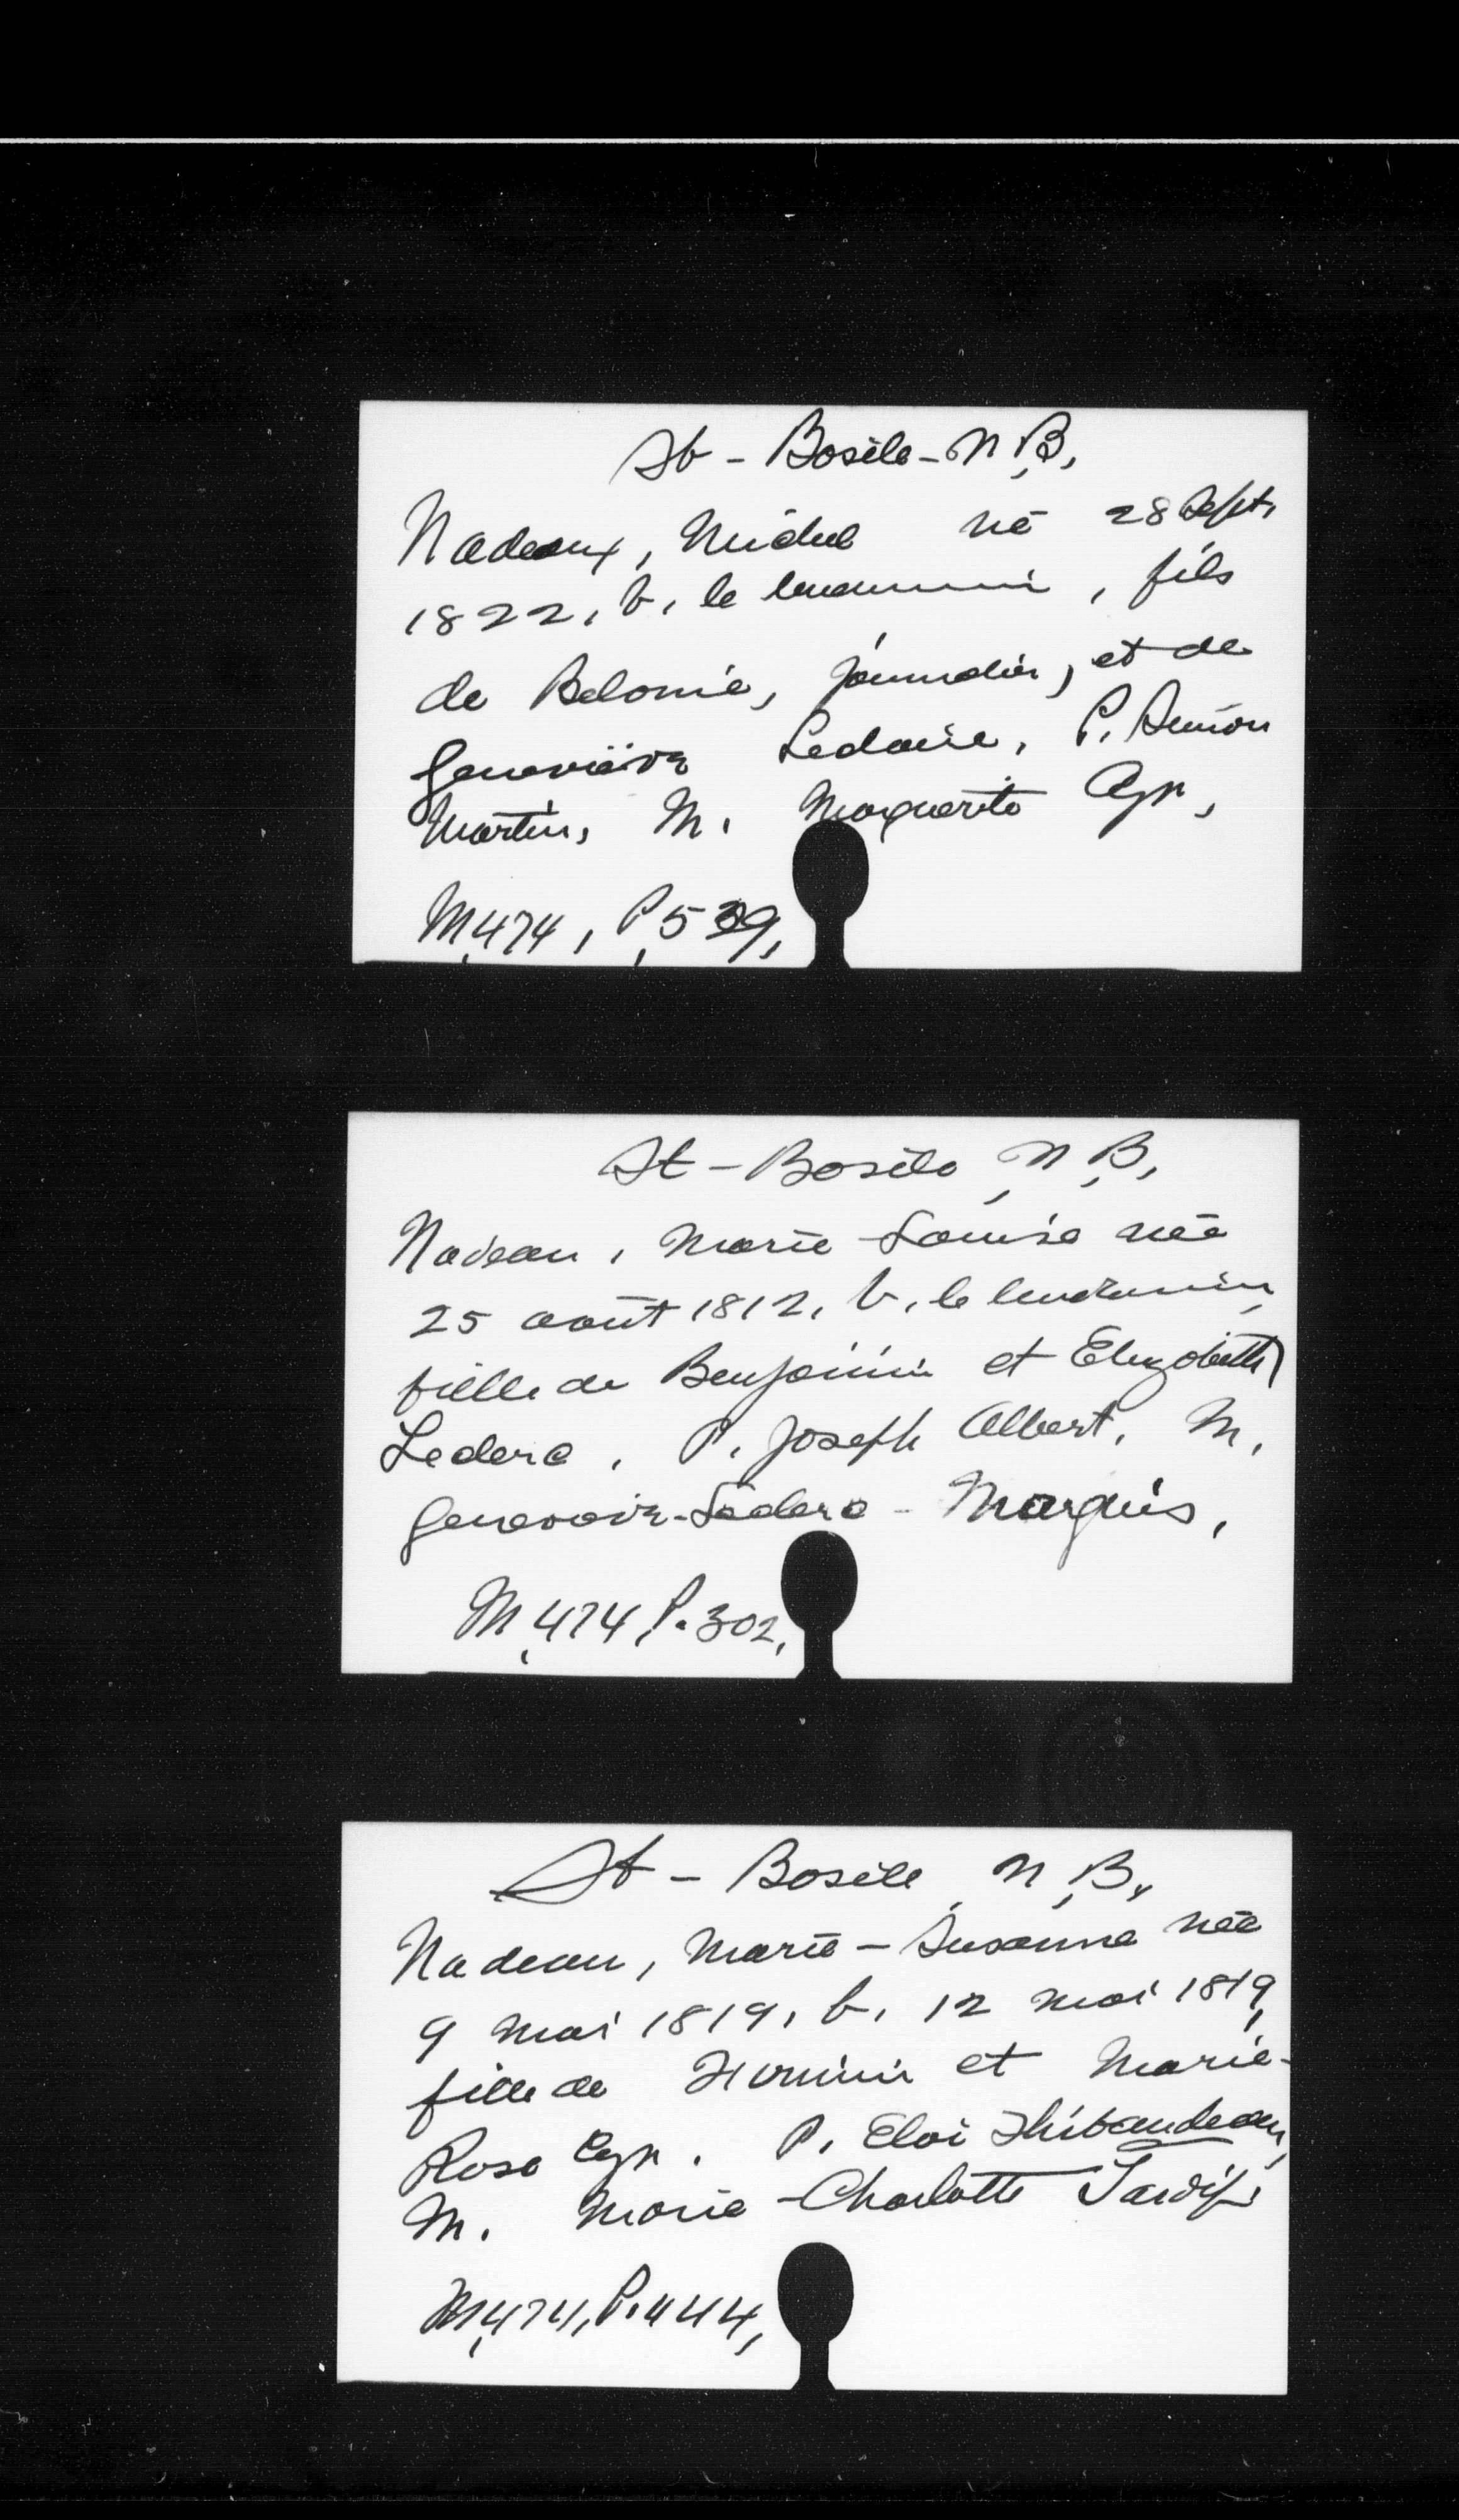 St-Basile-N.B.
Nadeaux, Michel né 28 Sept.
1822, b. le lendemain, fils
de Belonie, journalier, et de
Geneviève Leclaire, P. Simon
Martin, M. Marguerite Cyr,
M.474, P.539,
St-Basile, N.B.
Nadeau, Marie-Louise née
25 août 1812, b. le lendemain,
fille de Benjamin et Elizabeth
Leclerc. P. Joseph Albert, M.
Geneviève-Leclerc-Marquis,
M.474, P.302,
St-Basile, N.B.
Nadeau, Marie-Susanne née
9 mai 1819, b. 12 mai 1819,
fille de Firmin et Marie-
Rose Cyr. P. Eloi Thibaudeau,
M. Marie-Charlotte Tardif.
M.474, P.444,